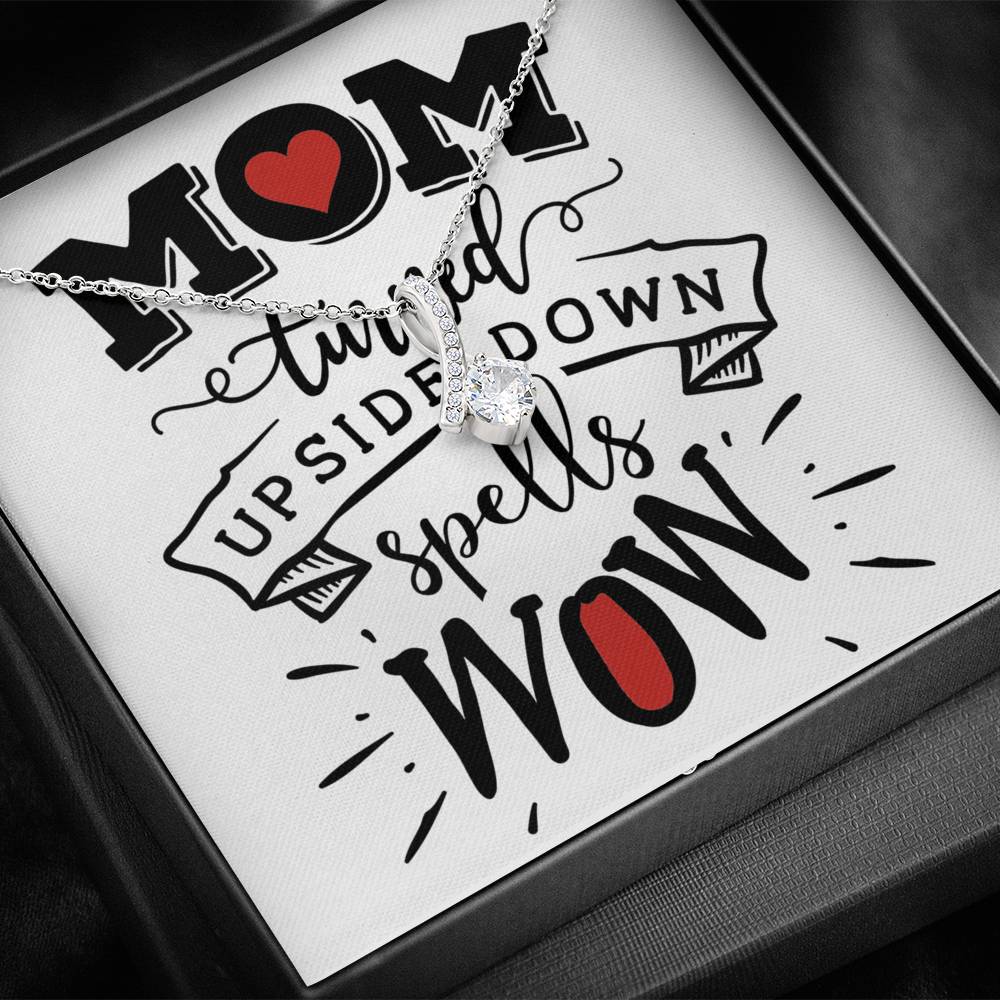 MOM
turned
UPSIDE DOWN
spells
WOW